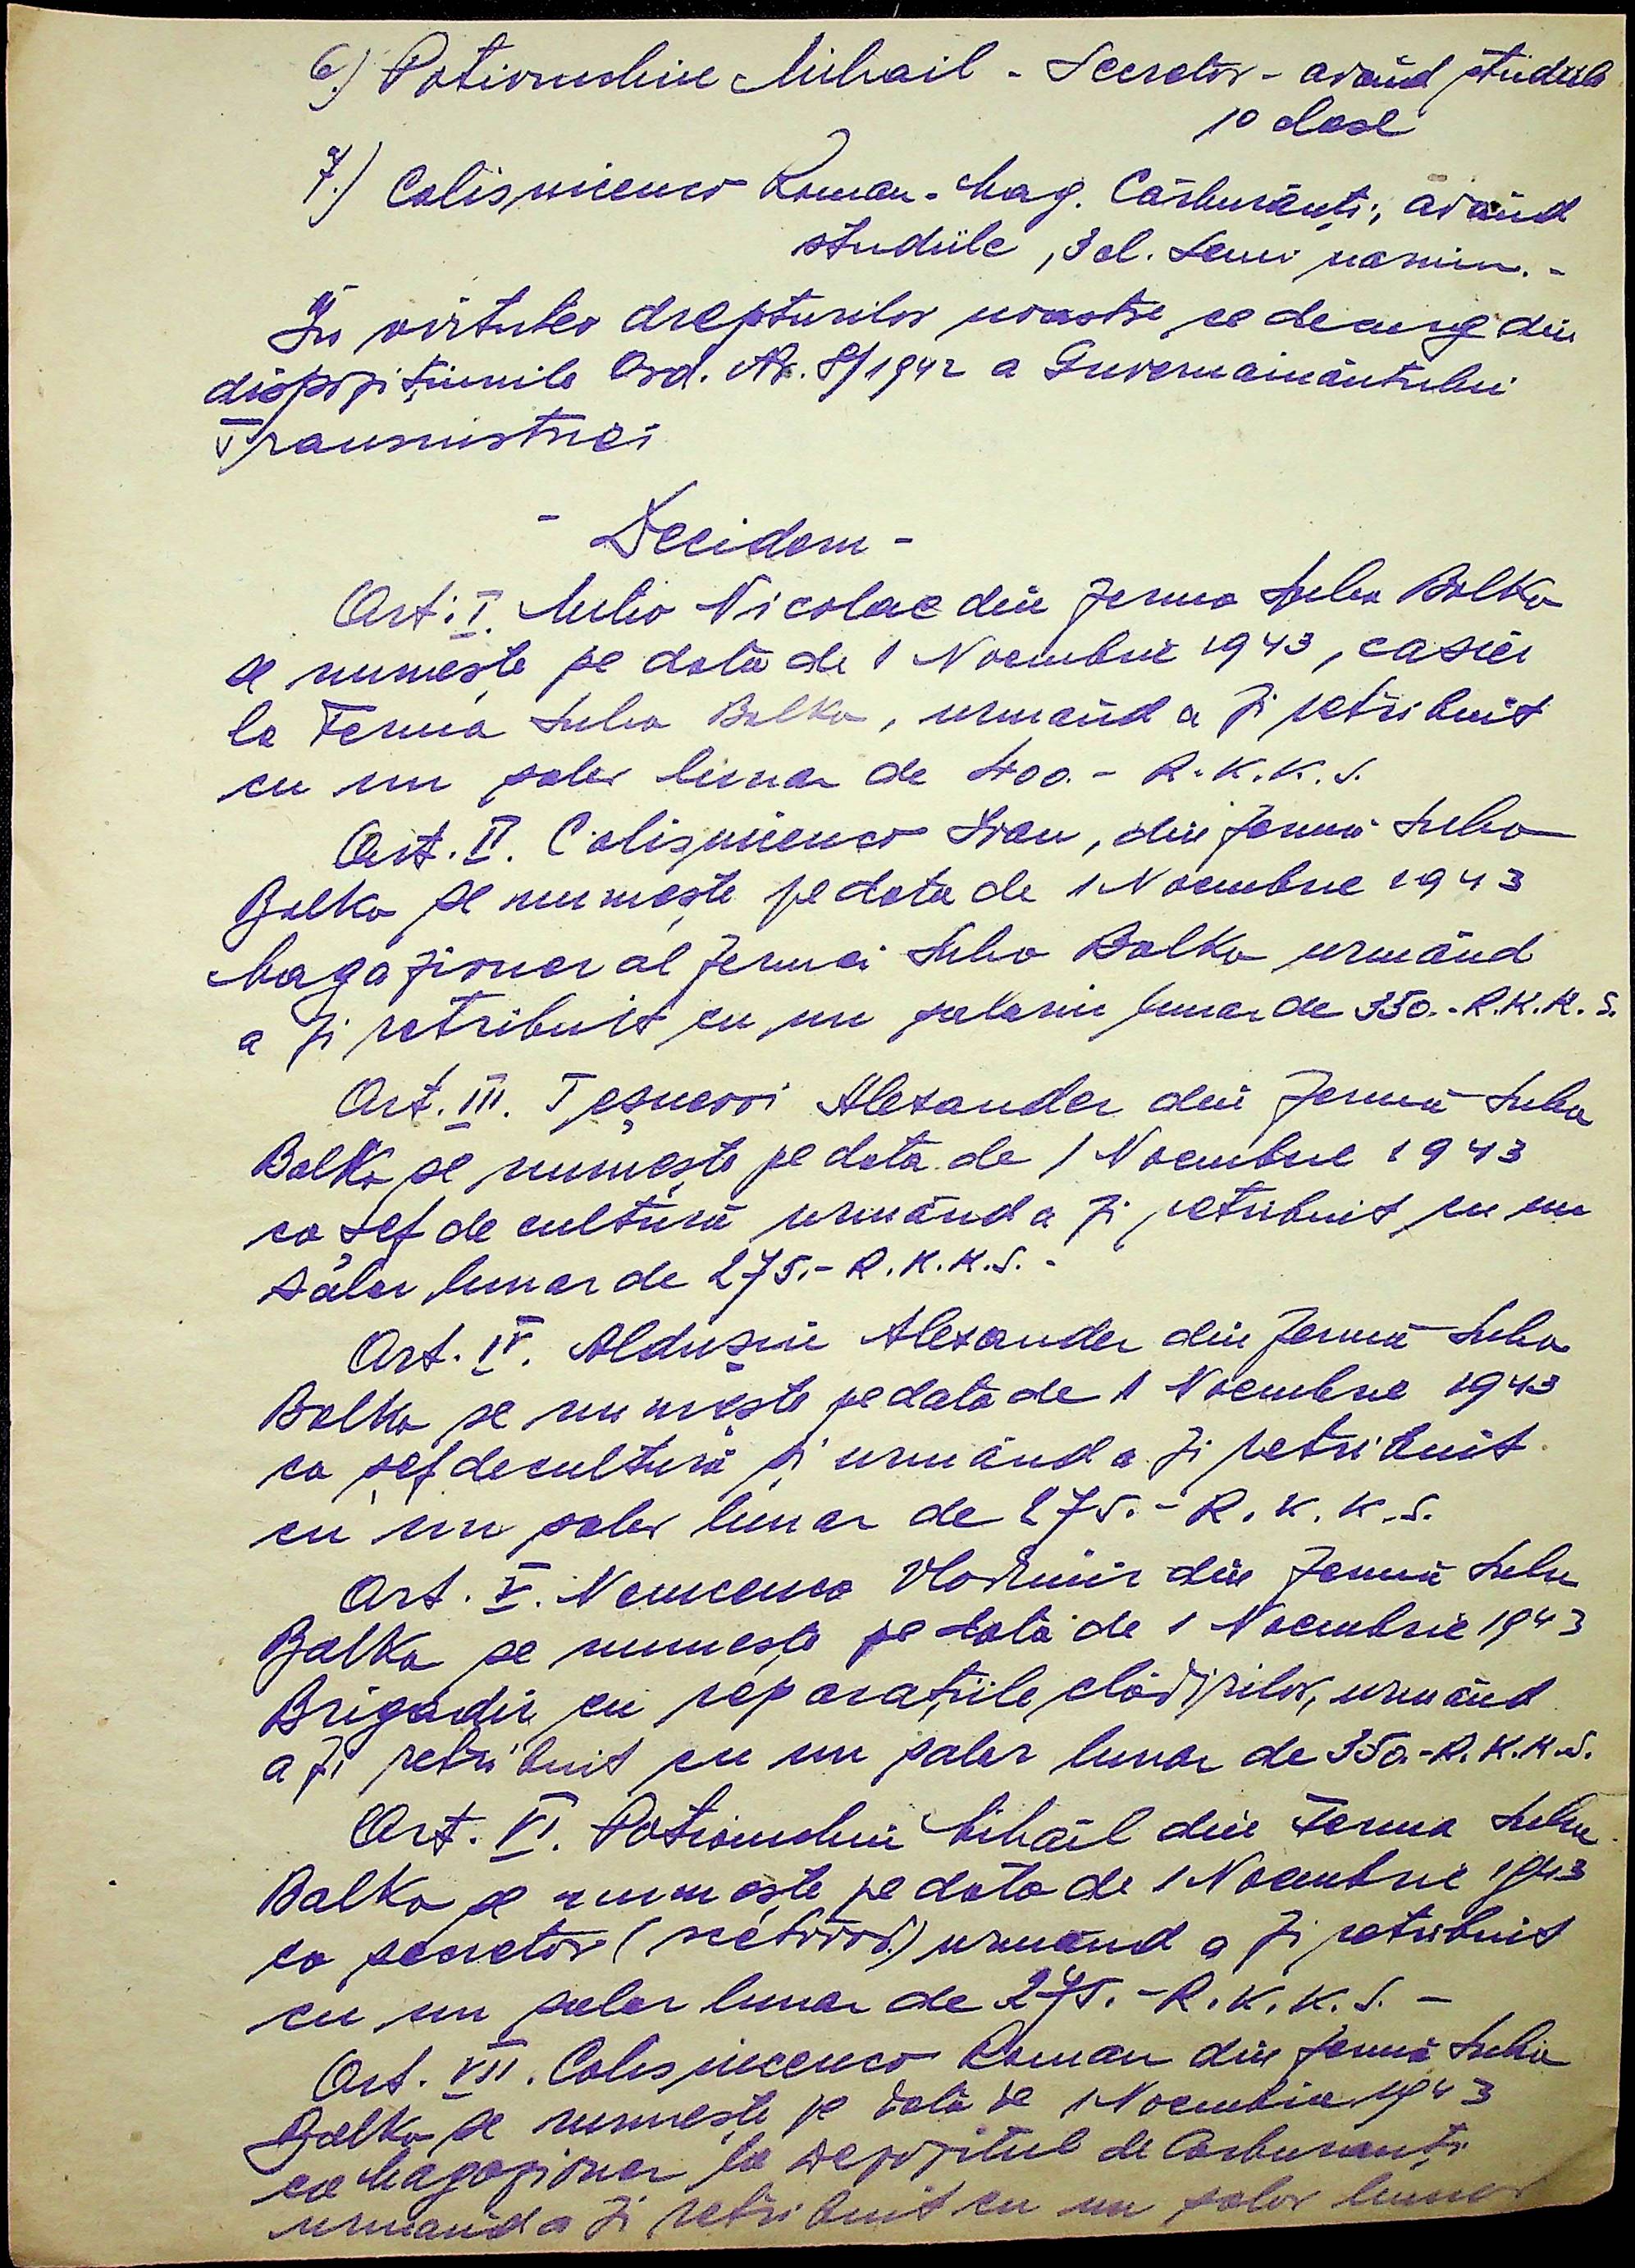 6.) Potiomchin Mihail - Secretar - având studiile
10 clase
7.) Colisnicenco Roman - Mag. Cărburanți, având
studiile, 3 cl. Semi
În virtutea drepturilor noastre ce decurg din
dispozițiunile Ord. Nr. 8/1942 a Guvernamântului
Transnistriei
- Decidem -
Art. I. Nicolae din ferma Suha Balka
se numește pe data de 1 Noembrie 1943, casier
la Ferma Suha Balka, urmând a fi retribuit
cu un salar lunar de 400.- R.K.K.S.
Art. II. Colisnicenco Ivan, din ferma Suha
Balka se numește pe data de 1 Noembrie 1943
Magazioner al fermei Suha Balka urmând
a fi retribuit cu un salariu lunar de 350.- R.K.K.S.
Art. III. Alexander din ferma Suha
Balka se numește pe data de 1 Noembrie 1943
ca șef de cultură urmând a fi retribuit cu un
salar lunar de 275.- R.K.K.S. -
Art. IV. Aldușin Alexander din ferma Suha
Balka se numește pe data de 1 Noembrie 1943
ca șef de cultură și urmând a fi retribuit
cu un salar lunar de 275.- R.K.K.S.
Art. V. Nemcenco Vladimir din ferma Suha
Balka se numește pe data de 1 Noembrie 1943
Brigadir cu reparațiile clădirilor, urmând
a fi retribuit cu un salar lunar de 350.- R.K.K.S.
Art. VI. Potiomchin Mihail din Ferma Suha
Balka se numește pe data de 1 Noembrie 1943
ca secretar ( ) urmând a fi retribuit
cu un salar lunar de 275.- R.K.K.S. -
Art. VII. Colisnicenco Roman din ferma Suha
Balka se numește pe data de 1 Noembrie 1943
ca Magazioner la Depozitul de Carburanți
urmând a fi retribuit cu un salar lunar